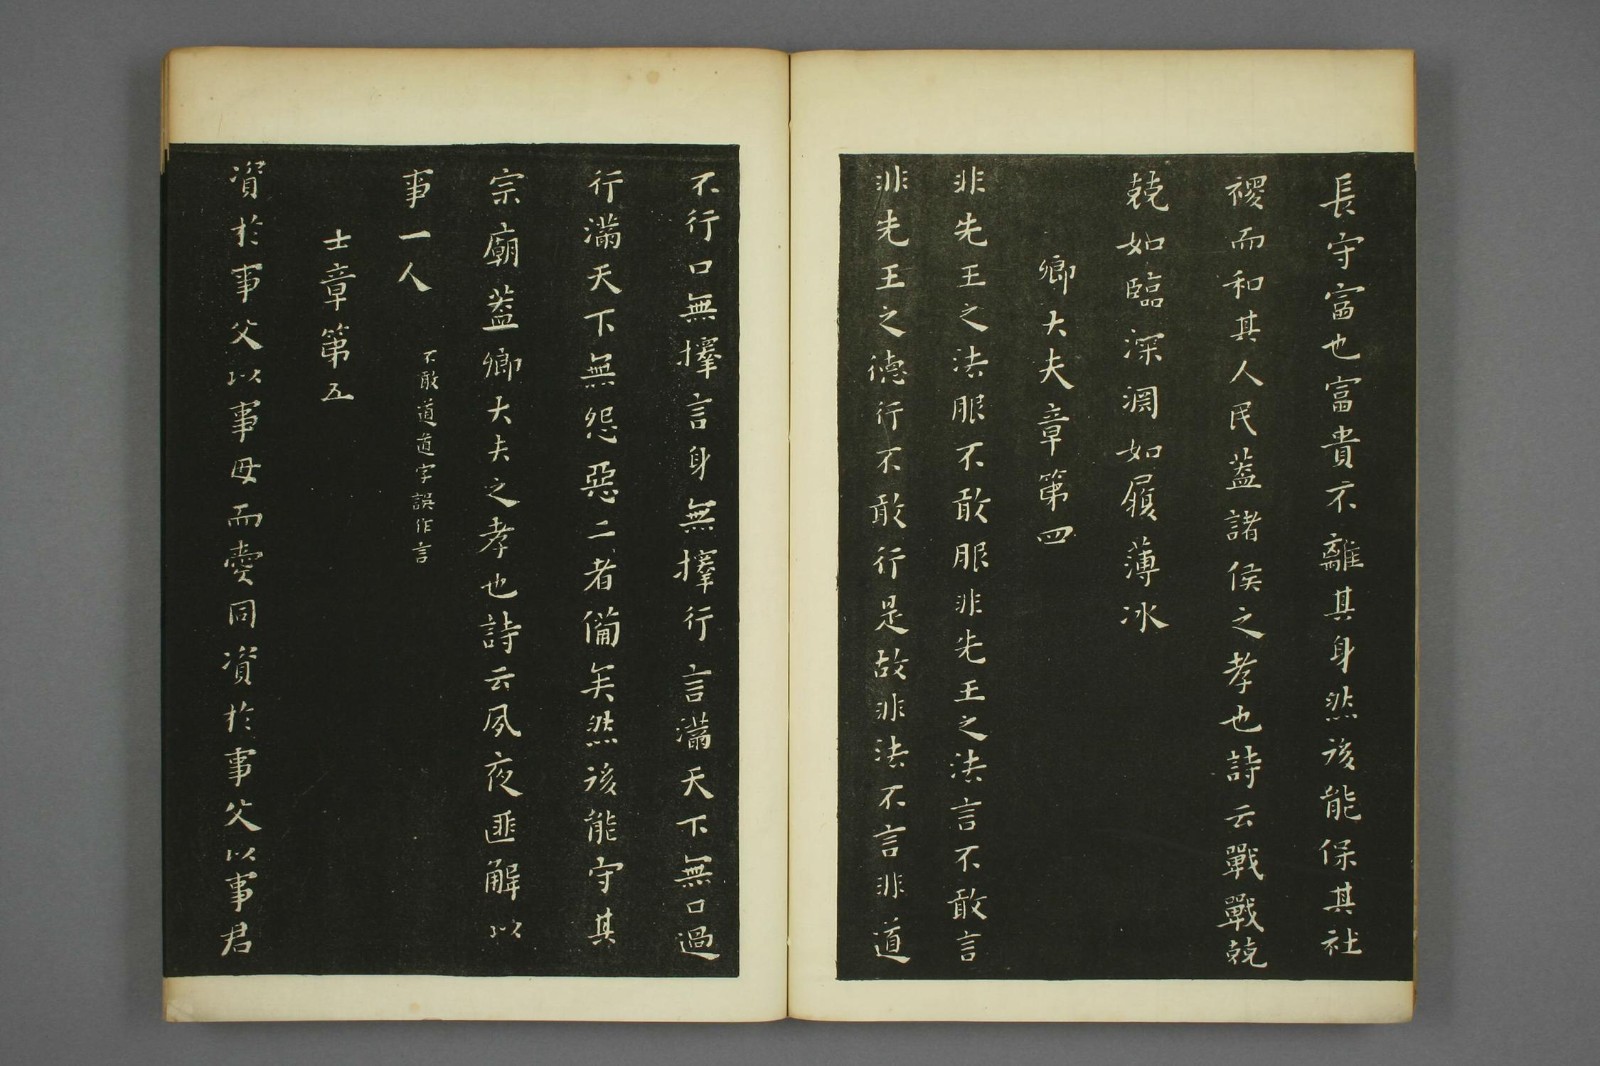 長守富也富貴不離其身然後能保其社
稷而和其人民蓋諸侯之孝也詩云戰戰兢
兢如臨深淵如履薄冰
卿大夫章第四
非先王之法服不敢服非先王之法言不敢言
非先王之德行不敢行是故非法不言非道
不行口無擇言身無擇行言滿天下無口過
行滿天下無怨惡二者備矣然後能守其
宗廟蓋卿大夫之孝也詩云夙夜匪解以
事一人
不敢道道字誤作言
士章第五
資於事父以事母而愛同資於事父以事君